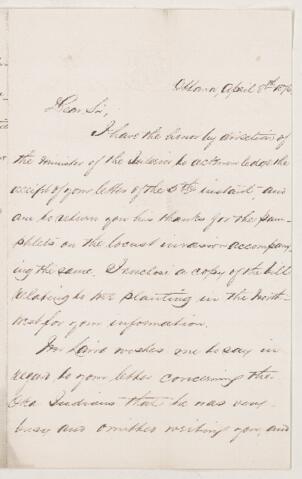 Ottawa, April 8th 1876
Dear Sir,
I have the honor by direction of
the Minister of the Interior to acknowledge the
receipt of your letter of the 5th instant, and
am to return you his thanks for the pam-
phlets on the locust invasion accompany-
ing the same. I enclose a copy of the bill
relating to tree planting in the North-
west for your information.
Mr Laird wishes me to say in
regard to your letter concerning the
Indians that he was very
busy and omitted writing you, and